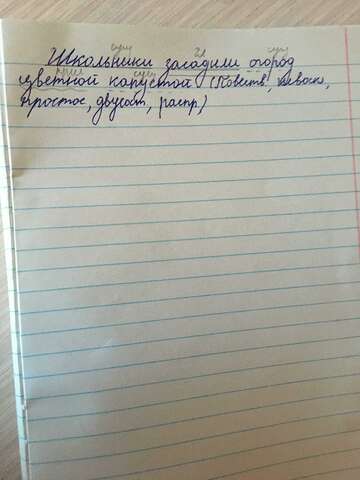 сущ гл сущ
Школьники засадили огород
прил сущ
цветной капустой (Повеств, невоскл,
простое, двусост, распр,)